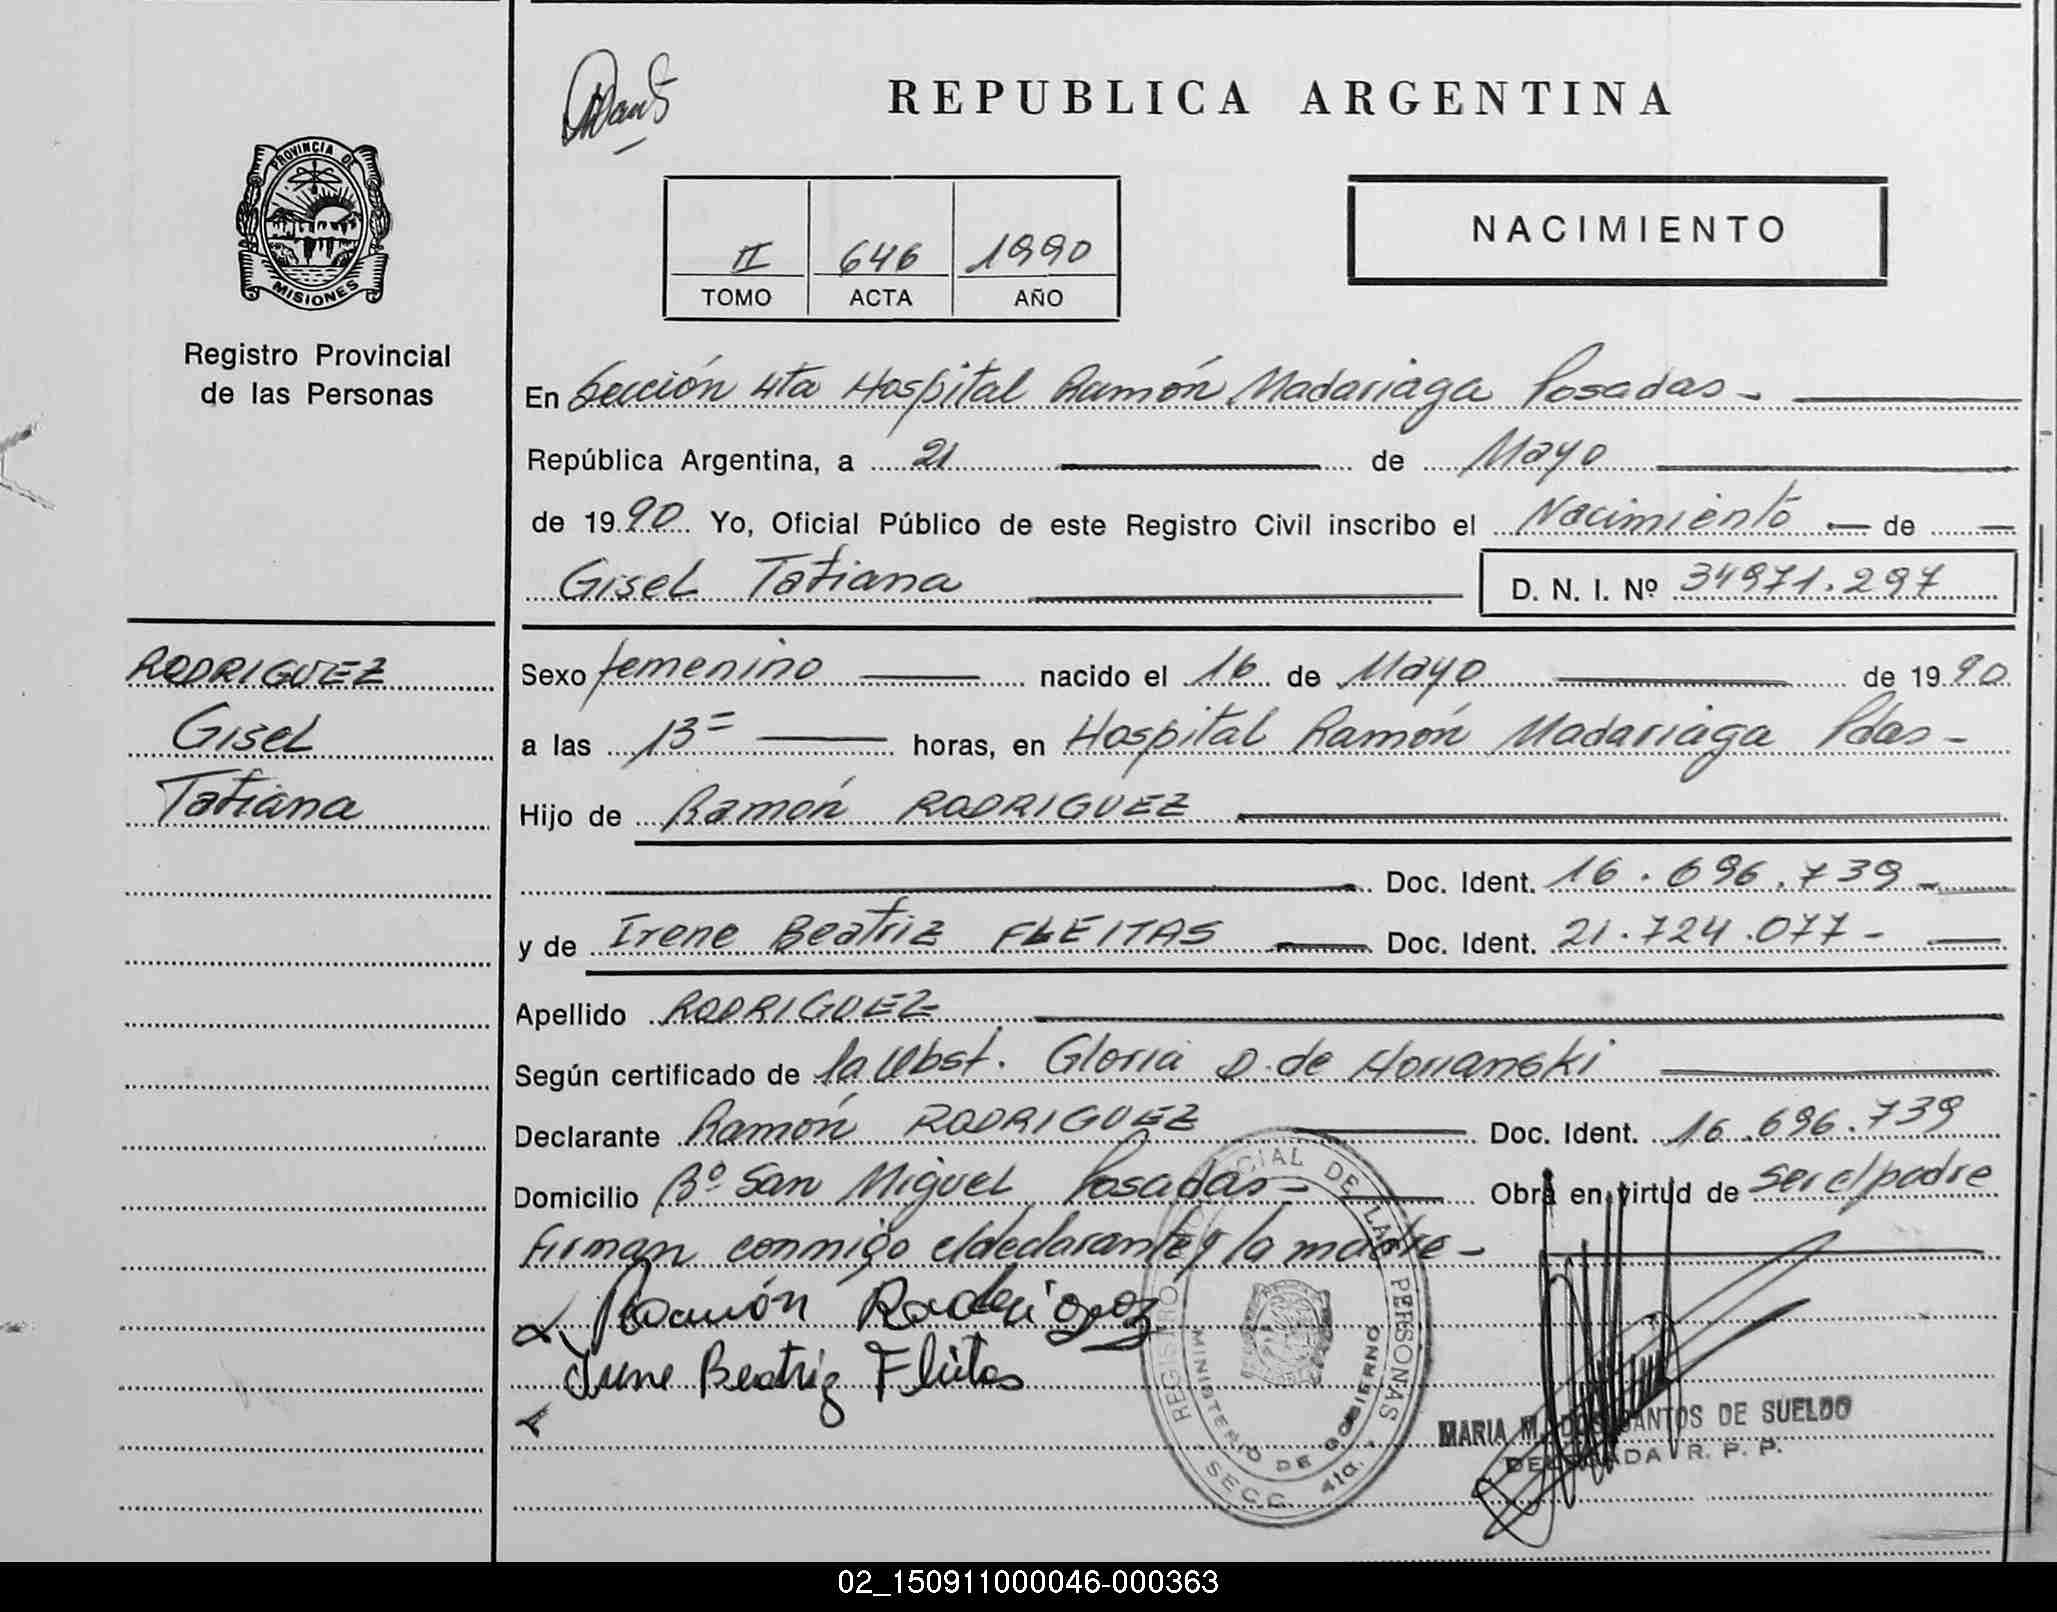 REPUBLICA ARGENTINA
PROVINCIA DE
MISIONES
Registro Provincial
de las Personas
II 646 1990
TOMO ACTA AÑO
NACIMIENTO
En Sección 4ta Hospital Ramón Madariaga Posadas-
República Argentina, a 21 de Mayo
de 1990 Yo, Oficial Público de este Registro Civil inscribo el Nacimiento de
Gisel Tatiana D. N. I. Nº 34971.297
RODRIGUEZ
Gisel
Tatiana
Sexo femenino nacido el 16 de Mayo de 1990
a las 13= horas, en Hospital Ramón Madariaga Pdas-
Hijo de Ramón RODRIGUEZ
Doc. Ident. 16.696.739-
y de Irene Beatriz FLEITAS Doc. Ident. 21.724.077-
Apellido RODRIGUEZ
Según certificado de la Obst. Gloria D. de
Declarante Ramón RODRIGUEZ Doc. Ident. 16.696.739
Domicilio Bº San Miguel Posadas- Obra en virtud de ser el padre
firman conmigo el declarante y la madre-
Ramón Rodriguez
Irene Beatriz Fleitas
REGISTRO PROVINCIAL DE LAS PERSONAS
MINISTERIO DE GOBIERNO
SECC. 4ta.
MARIA M. DOS SANTOS DE SUELDO
DELEGADA R. P. P.
02_150911000046-000363